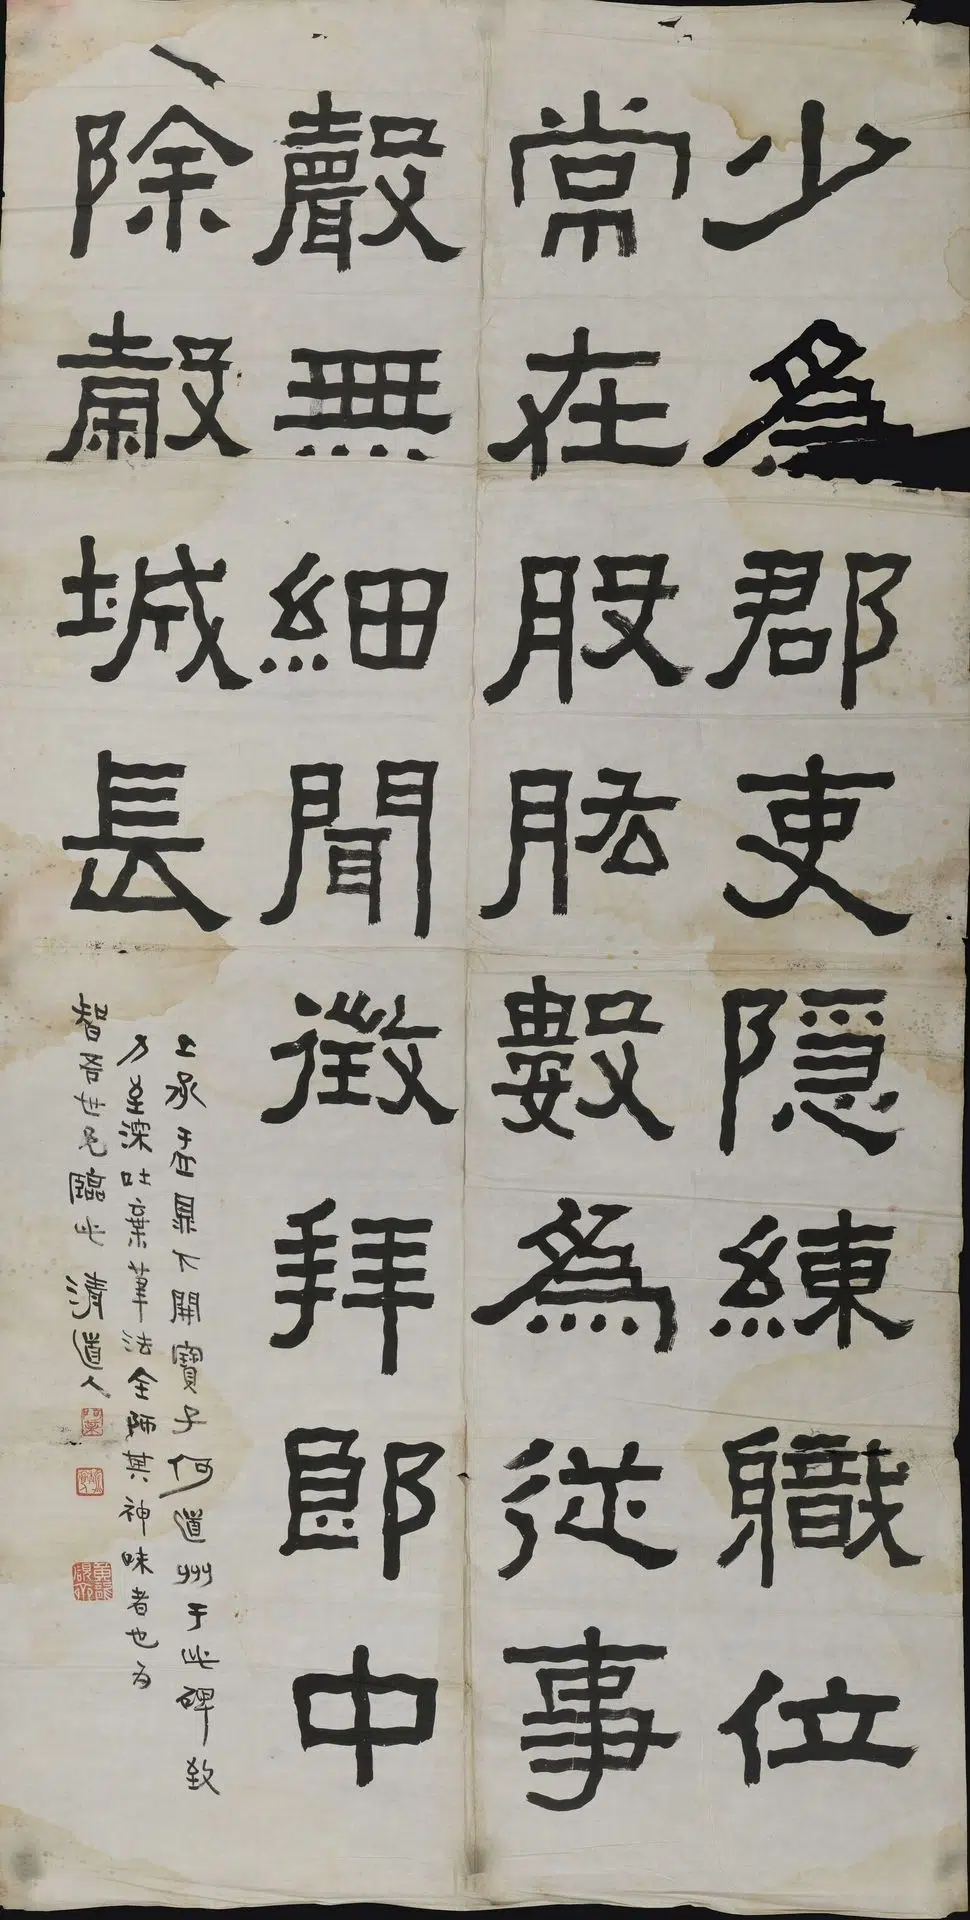 少爲郡吏隱練職位
常在股肱數爲從事
聲無細聞徵拜郎中
除穀城長
上承盂鼎下開寶子何道州于此碑致
力至深吐棄筆法全師其神味者也为
智吾世兄臨此 清道人